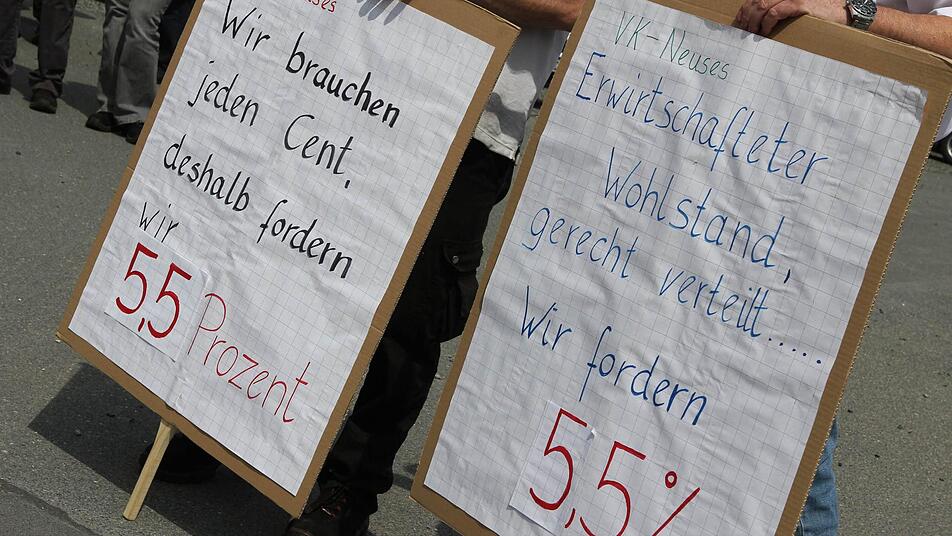 Wir brauchen
jeden Cent,
deshalb fordern
wir
5,5 Prozent
VK-Neuses
Erwirtschafteter
Wohlstand,
gerecht verteilt.....
Wir fordern
5,5%